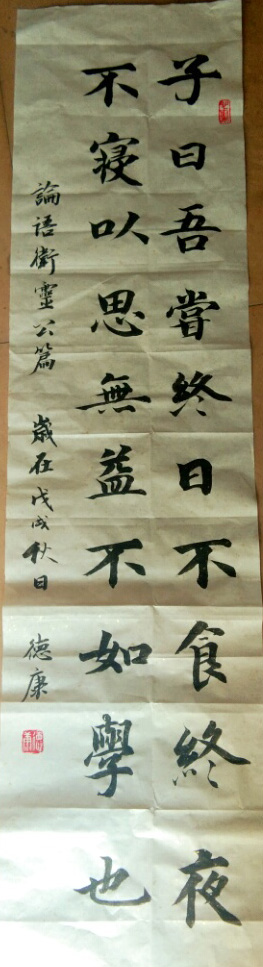 子曰吾嘗終日不食終夜
不寝以思無益不如學也
論语衛靈公篇 歲在戊戌秋日 德康